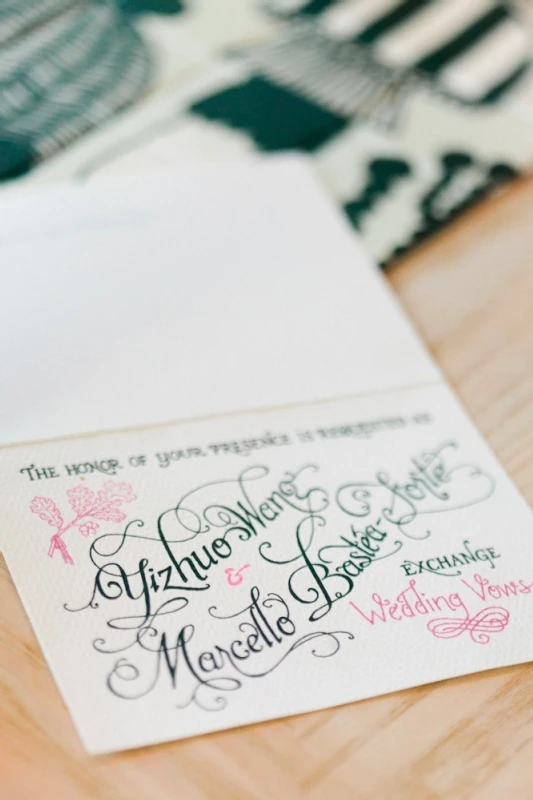 THE HONOR OF YOUR PRESENCE IS REQUESTED AS
Yizhuo Wang
&
Marcello Bastéa-Forte
EXCHANGE
Wedding Vows